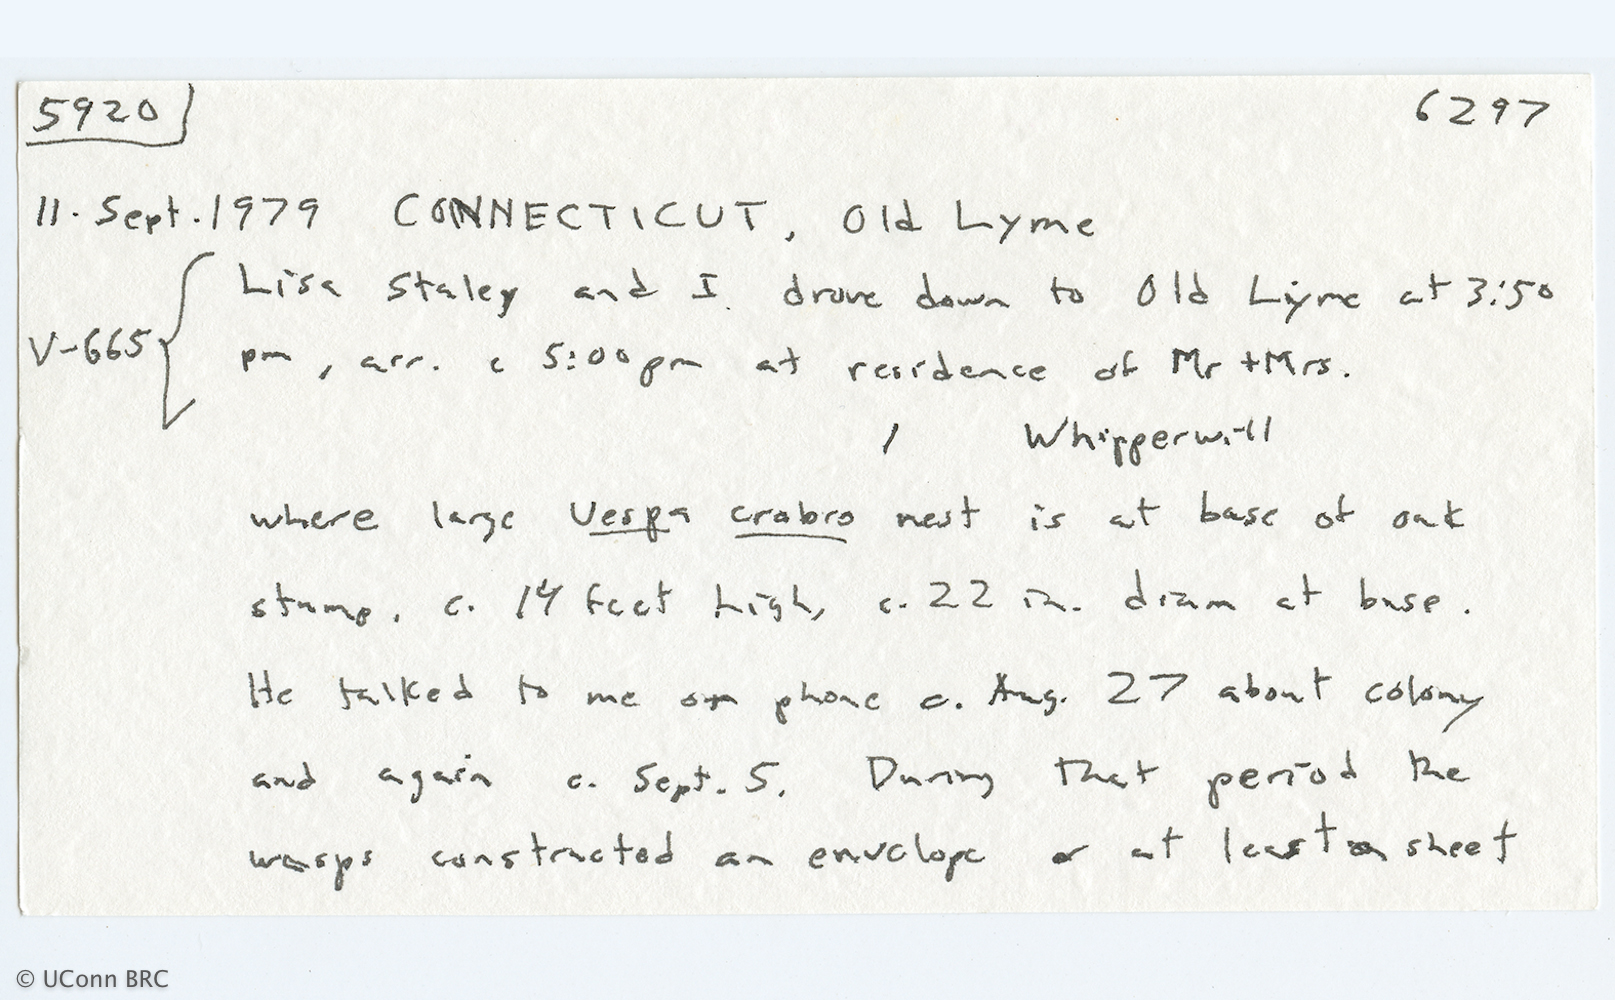 5920 6297
11. Sept. 1979 CONNECTICUT, Old Lyme
Lisa Staley and I drove down to Old Lyme at 3:50
V-665
pm, arr. c 5:00 pm at residence of Mr + Mrs.
, Whipperwill
where large Vespa crabro nest is at base of oak
stump. c. 14 feet high, c. 22 in. diam at base.
He talked to me on phone c. Aug. 27 about colony
and again c. Sept. 5. During that period the
wasps constructed an envelope or at least a sheet
© UConn BRC